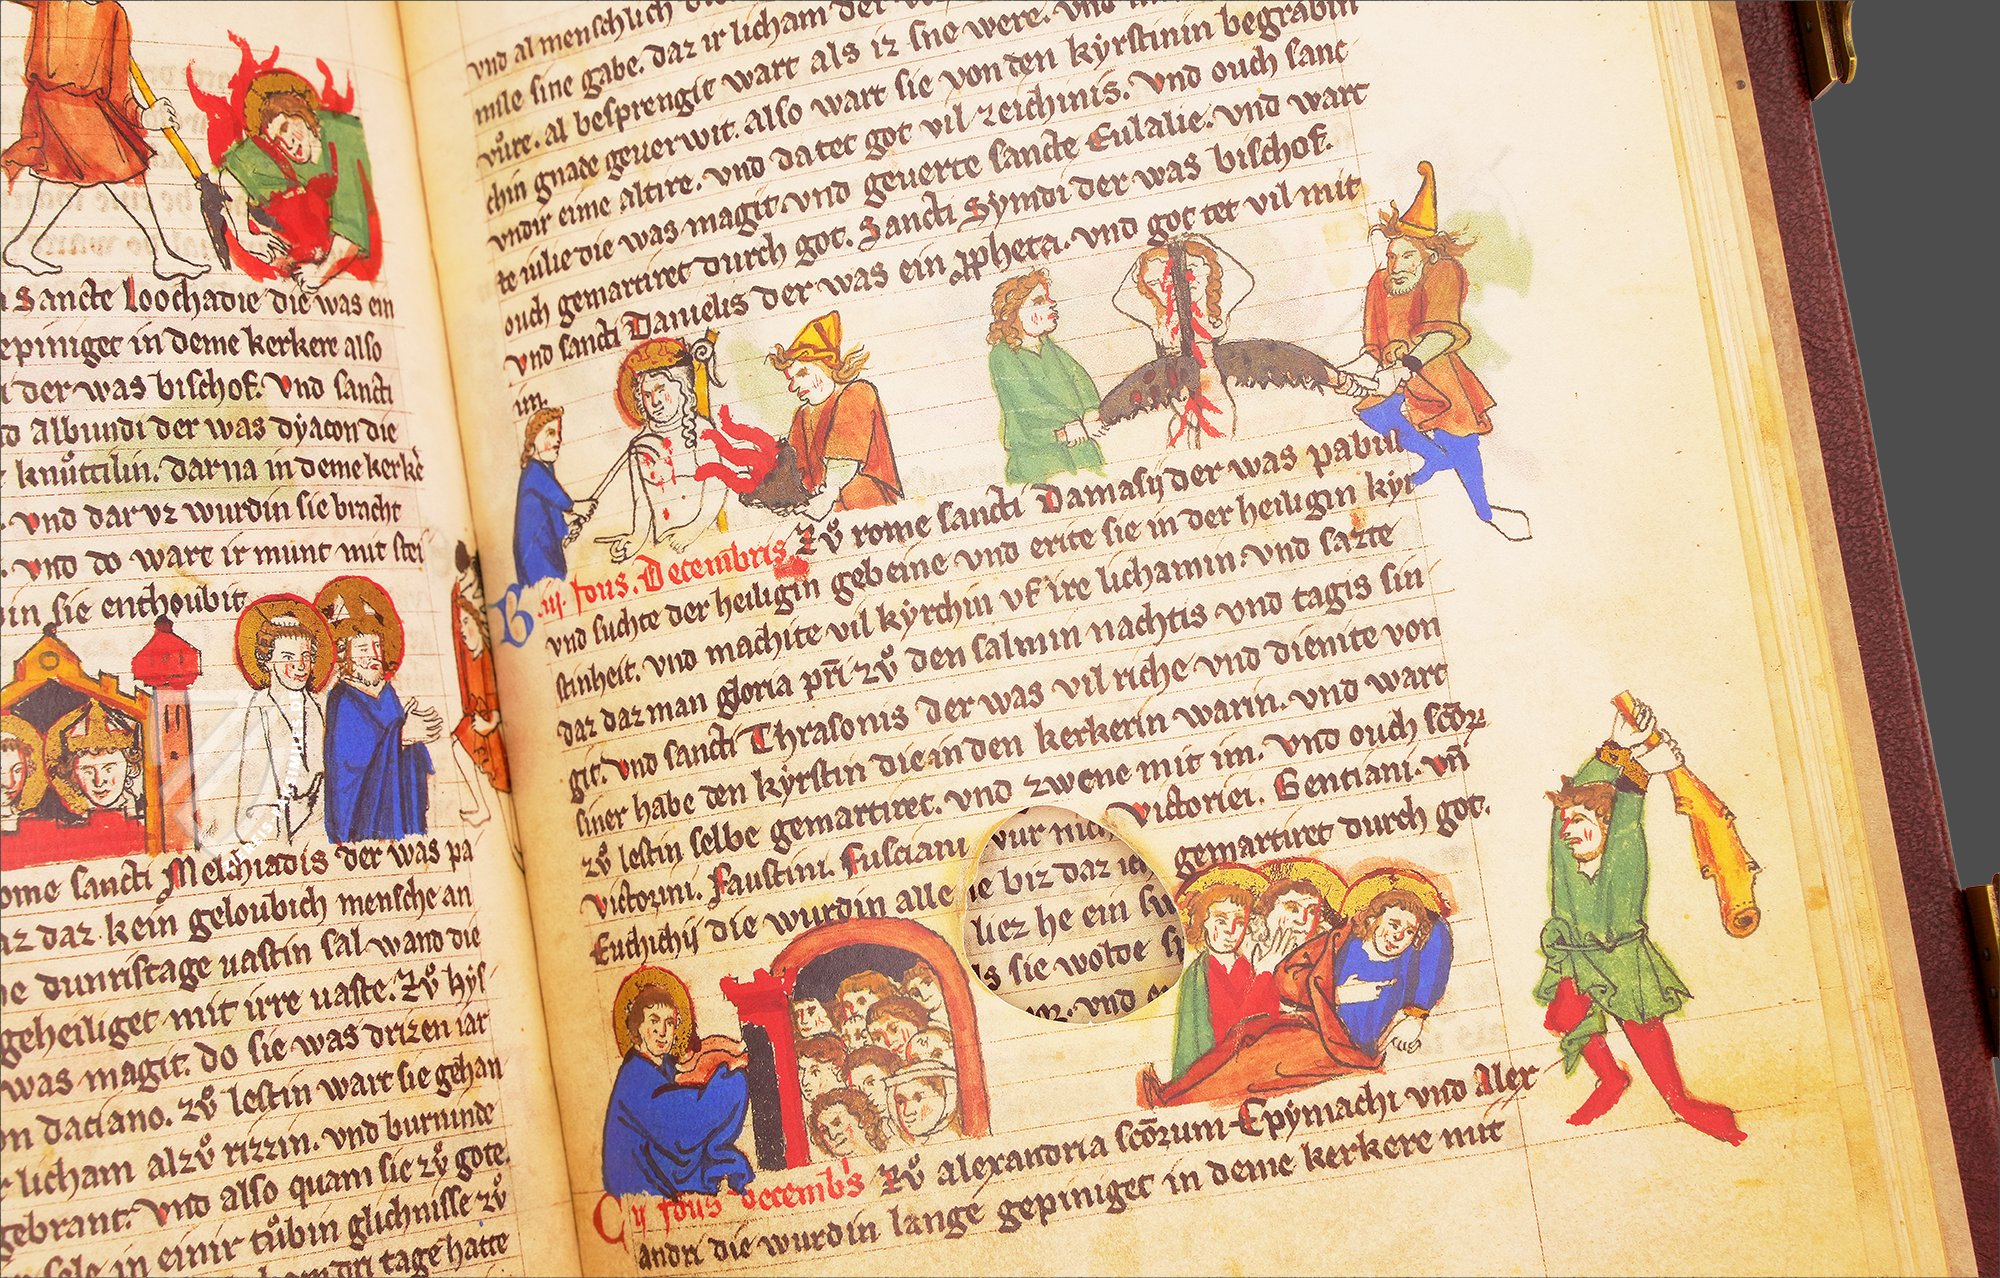 Sancte Loochadie die was ein
epiniget in deme kerkere also
der was bischof. Vnd sancti
Albundi der was dyacon die
knůttilin. darna in deme kerke
vnd dar vz wurdin sie bracht
vnd do wart ir munt mit stei
in sie enthoubit
ome sancti Melchiadis der was pa
az daz kein geloubich mensche an
e dunristage uastin sal wand die
geheiliget mit irre uaste. Zů hys
was magit. do sie was drizen iar
n daciano. zů lestin wart sie gehan
licham alzů rizzin. vnd burninde
gebrant. Vnd also quam sie zů gote.
sele in einir tůbin glichnisse zů
dri tage hatte
vnd al menschlich
misse sine gabe. daz ir licham der
vůre. al besprengit wart als iz sne were. vnd
chin gnade geuerwit. also wart sie von den kyrstinin begrabin
vndir eime altire. vnd da tet got vil zeichinis. Vnd ouch sanc
te iulie die was magit. vnd geuerte sancte Eulalie. vnd wart
ouch gemartiret durch got. Sancti Syndi der was bischof.
vnd sancti Danielis der was ein ppheta. vnd got tet vil mit
im.
B iij. Idus. Decembris Zů rome sancti Damasij der was pabist
vnd suchte der heiligin gebeine vnd erite sie in der heiligin kyr
stinheit. vnd machite vil kyrchin vf ire lichamin. vnd sazte
daz daz man gloria pri zů den salmin nachtis vnd tagis sin
git. vnd sancti Thrasonis der was vil riche vnd dienite von
siner habe den kyrstin die in den kerkerin warin. vnd wart
zů lestin selbe gemartiret. vnd zwene mit im. Vnd ouch scōr
Victorini. Faustini. Fusciani Victoriei. Gentiani. vn
Euthichij die wurdin alle gemartiret durch got.
vur nich
ie biz daz ich
liez he ein
s sie wolde
vnd
C ij Idus decembs Zů alexandria scōrum Epymachi vnd Alex
andri die wurdin lange gepiniget in deme kerkere mit